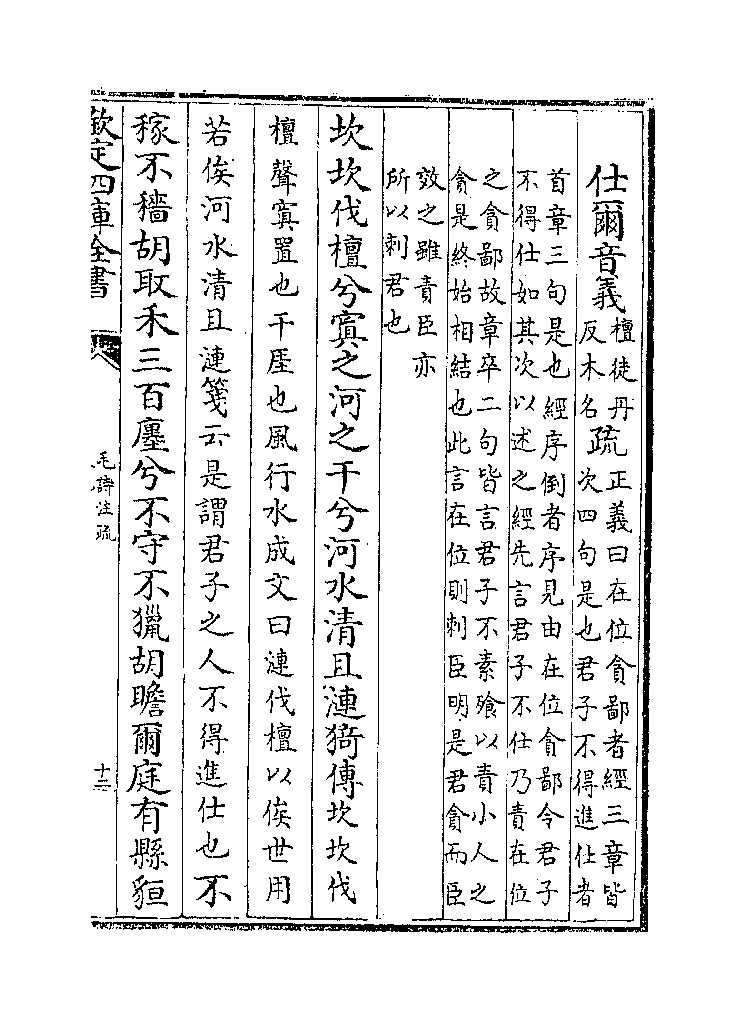 仕爾音義檀徒丹
反木名
疏正義曰在位貪鄙者經三章皆
次四句是也君子不得進仕者
首章三句是也經序倒者序見由在位貪鄙令君子
不得仕如其次以述之經先言君子不仕乃責在位
之貪鄙故章卒二句皆言君子不素飱以責小人之
貪是終始相結也此言在位則刺臣明是君貪而臣
效之雖責臣亦
所以刺君也
坎坎伐檀兮寘之河之干兮河水清且漣猗傳坎坎伐
檀聲寘置也干厓也風行水成文曰漣伐檀以俟世用
若俟河水清且漣箋云是謂君子之人不得進仕也不
稼不穡胡取禾三百廛兮不守不獵胡瞻爾庭有縣貆
欽定四庫全書
毛詩注疏